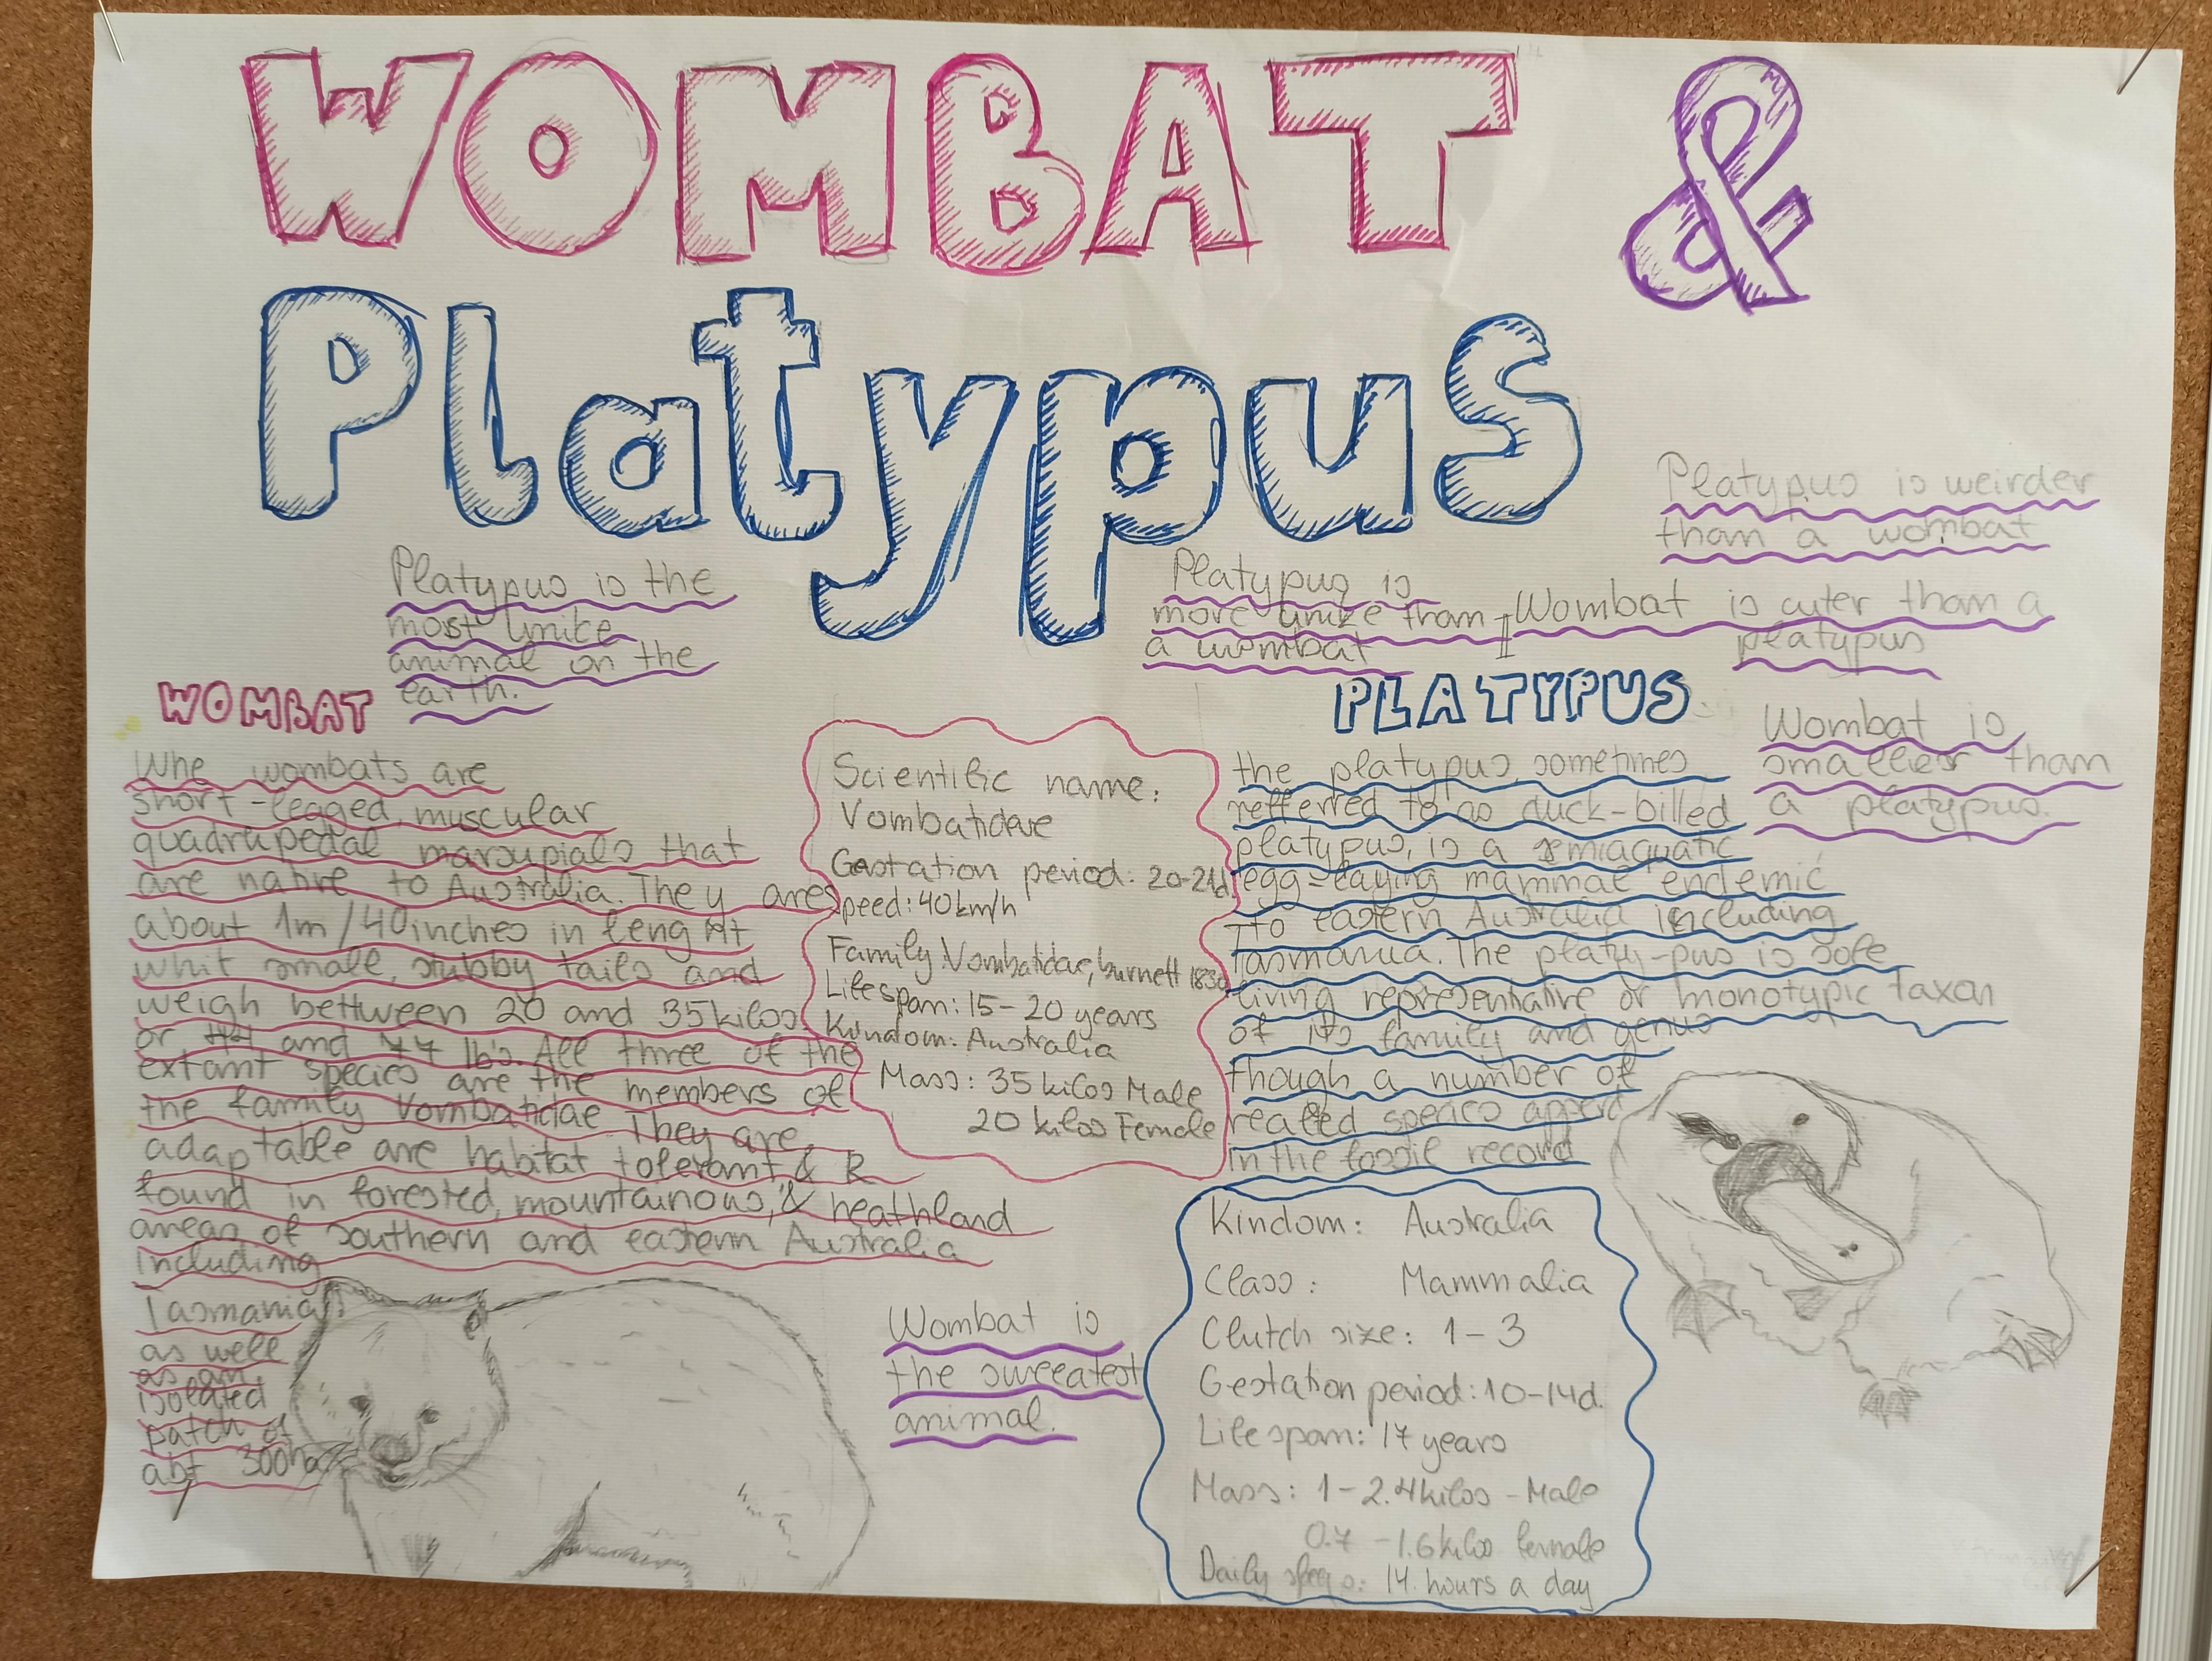 WOMBAT &
Platypus
Platypus is weirder
than a wombat
Platypus is the
most unike
animal on the
earth.
Platypus is
more unike than
a wombat
Wombat is cuter than a
platypus
Wombat is
smaller than
a platypus.
WOMBAT
Whe wombats are
short-legged, muscular
quadrupedal marsupials that
are native to Australia. They are
about 1m/40inches in lenght
whit small, stubby tails and
weigh bettween 20 and 35kilos
or 44 and 77 lbs. All three of the
extant species are the members of
the family Vombatidae. They are
adaptable are habitat tolerant, &
found in forested, mountainous, & heathland
areas of southern and eastern Australia
including
Tasmania,
as well
as an
isolated
patch of
abt 300ha
Scientific name:
Vombatidae
Gestation period: 20-21d
speed: 40km/h
Family: Vombatidae, burnett 1830
Lifespan: 15-20 years
Kindom: Australia
Mass: 35 kilos Male
20 kilos Female
PLATYPUS
the platypus, sometimes
refferred to as duck-billed
platypus, is a semiaquatic
egg-laying mammal endemic
to eastern Australia including
Tasmania. The platy-pus is sole
living representiative or monotypic taxon
of its family and genus
though a number of
realted species apperd
in the fossil record
Wombat is
the sweeatest
animal.
Kindom: Australia
Class: Mammalia
Clutch size: 1-3
Gestation period: 10-14d.
Life spam: 17 years
Mass: 1-2.4kilos - Male
0.7 -1.6kilos female
Daily : 14 hours a day